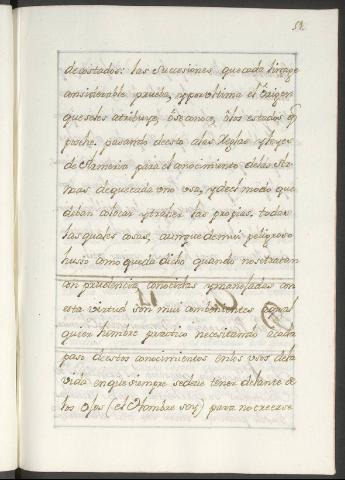 51.
de costados: las Sucesiones que cada linage
considerable prueba, y por vltima el origen
que se les atribuye, ò se conoce, ò los estados q̃
posehe. pasando de esto a las Reglas y leyes
de Armeria para el conocimiento de las Ar-
mas de que cada vno vsa, y de el modo que
deban colocar y traher las propias, todas
las quales cosas, aunque de mui peligroso
husso como queda dicho quando no se tratan
con prudencia, conocidas y manejadas con
esta virtud son mui combenientes à qual
quier hombre practico necesitando à cada
paso de estos conocimientos en los vsos de la
vida en que siempre se deve tener delante de
los ojos (el Hombre soy) para no creerse